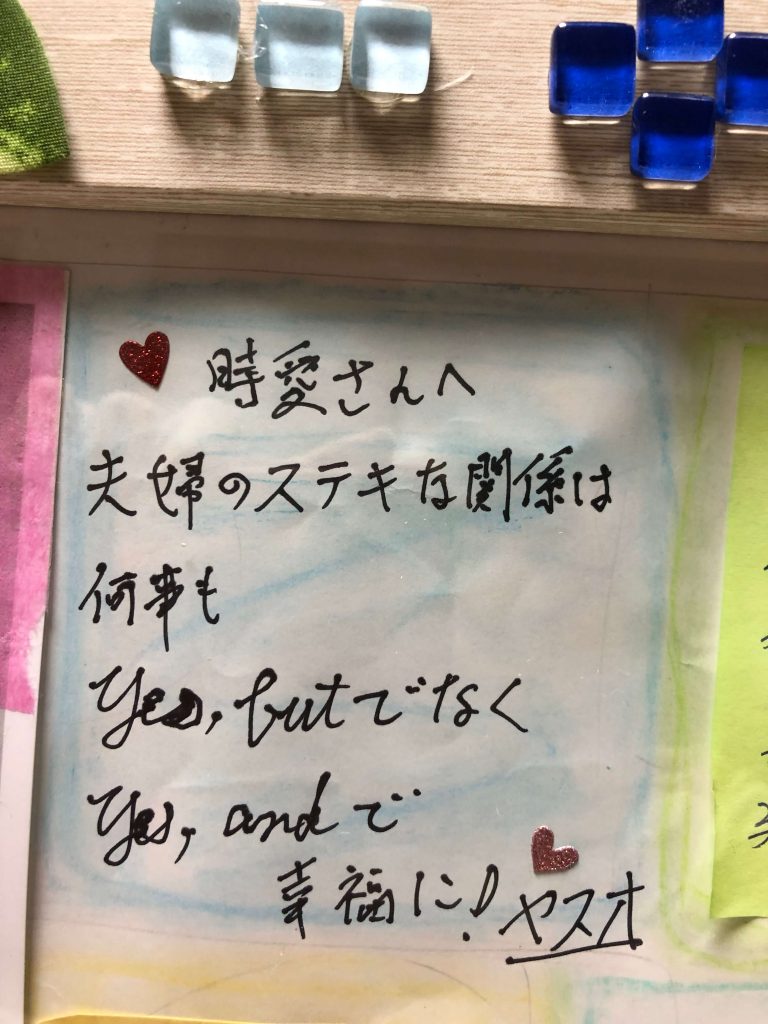 時愛さんへ
夫婦のステキな関係は
何事も
Yes, butでなく
Yes, andで
幸福に!
ヤスオ